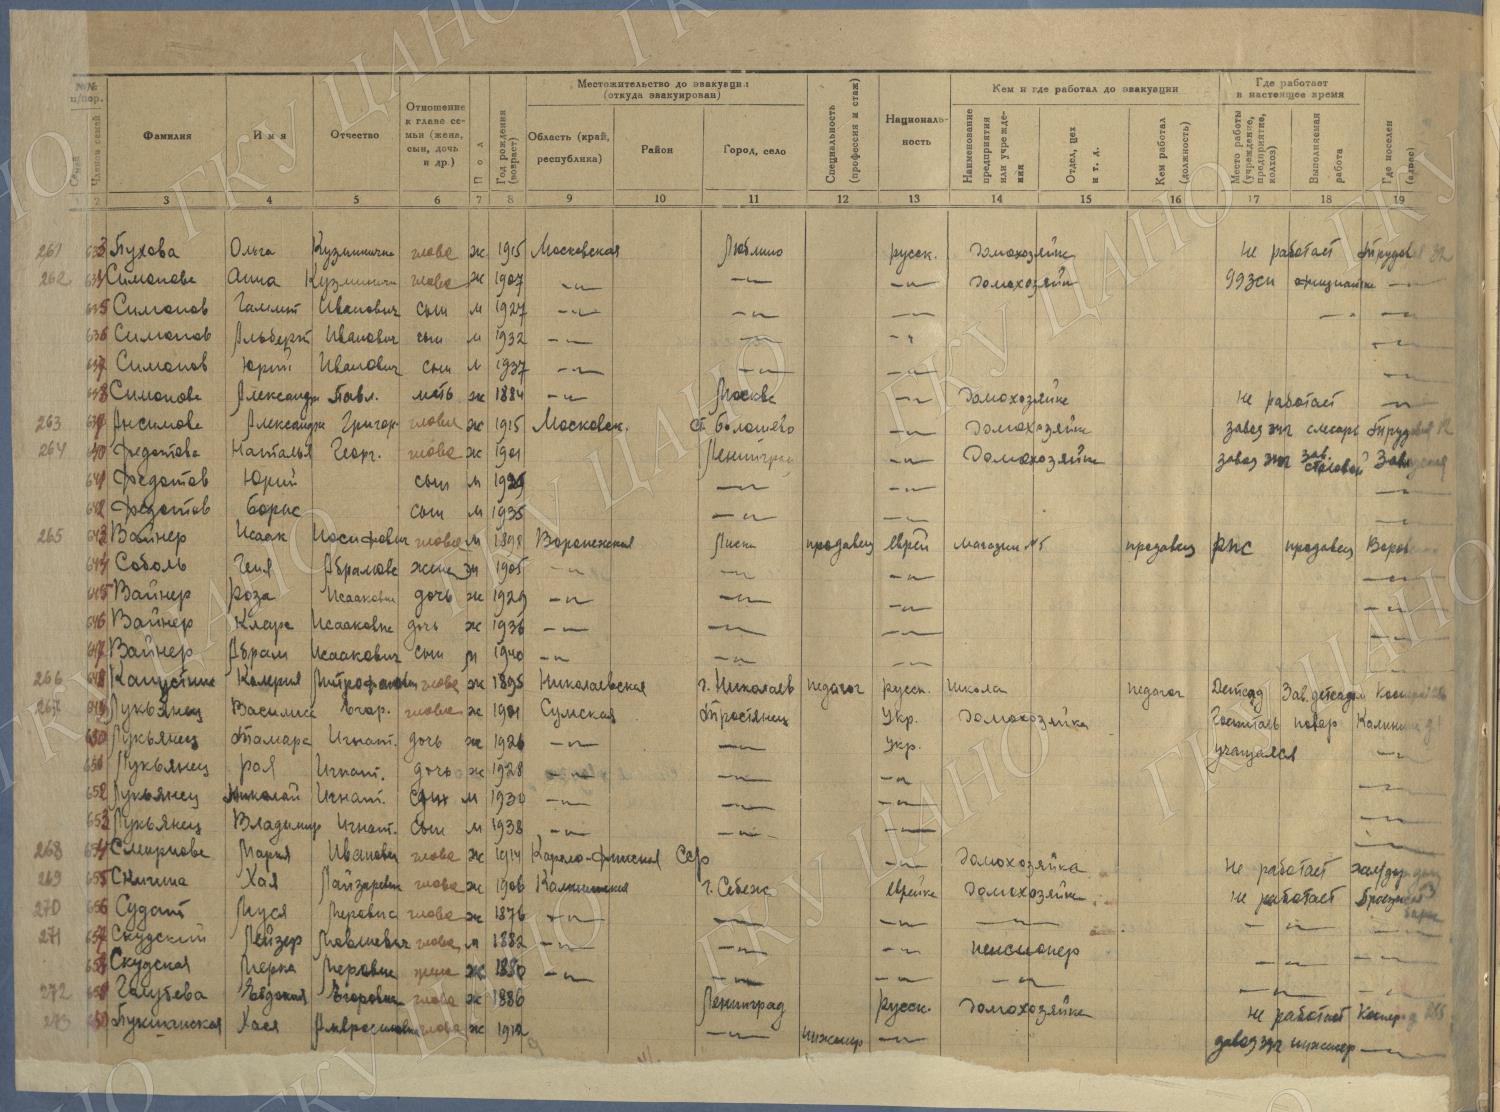 №№ п/пор.
Семей
Членов семей
Фамилия
Имя
Отчество
Отношение к главе семьи (жена, сын, дочь и др.)
Пол
Год рождения (возраст)
Местожительство до эвакуации (откуда эвакуирован)
Область (край, республика)
Район
Город, село
Специальность (профессия и стаж)
Националь-ность
Кем и где работал до эвакуации
Наименование предприятия или учреждения
Отдел, цех и т. д.
Кем работал (должность)
Где работает в настоящее время
Место работы (учреждение, предприятие, колхоз)
Выполняемая работа
Где поселен (адрес)
1 2 3 4 5 6 7 8 9 10 11 12 13 14 15 16 17 18 19
261 633 Пухова Ольга Кузьминична глава ж 1915 Московская Люблино русск. Домохозяйка не работает
262 634 Симонова Анна Кузьминичн глава ж 1907 -„- -„- -„- Домохозяйк -„-
635 Симонов Иванович сын м 1927 -„- -„- -„- -„- -„-
636 Симонов Альберт Иванович сын м 1932 -„- -„- -„- -„-
637 Симонов Юрий Иванович сын м 1937 -„- -„- -„- -„-
638 Симонова Александр Павл. мать ж 1884 -„- Москва -„- Домохозяйка не работает -„-
263 639 Ансимова Александра Григор. глава ж 1915 Московск. ст. Болошево -„- Домохозяйка завод слесарь
264 640 Федотова Наталья Георг. глава ж 1901 Ленинград -„- Домохозяйка завод зав. столовой
641 Федотов Юрий сын м 1925 -„- -„- -„-
642 Федотов Борис сын м 1935 -„- -„- -„-
265 643 Вайнер Исаак Иосифович глава м 1898 Воронежская Лиски продавец Еврей магазин №5 продавец РПС продавец
644 Соболь Геня Абрамовна жена ж 1905 -„- -„- -„- -„-
645 Вайнер Роза Исааковна дочь ж 1929 -„- -„- -„- -„-
646 Вайнер Клара Исааковна дочь ж 1936 -„- -„- -„- -„-
647 Вайнер Абрам Исаакович сын м 1940 -„- -„- -„- -„-
266 648 Капустина Калерия Митрофановн глава ж 1895 Николаевская г. Николаев педагог русск. школа педагог Детсад Зав. детсадом
267 649 Лукьянец Василиса Егор. глава ж 1901 Сумская Тростянец Укр. Домохозяйка Госпиталь повар
650 Лукьянец Тамара Игнат. дочь ж 1926 -„- -„- Укр. учащаяся -„-
651 Лукьянец Рая Игнат. дочь ж 1928 -„- -„- -„- -„-
652 Лукьянец Николай Игнат. сын м 1930 -„- -„- -„- -„-
653 Лукьянец Владимир Игнат. сын м 1938 -„- -„- -„- -„-
268 654 Смирнова Мария Ивановн глава ж 1914 Карело-Финская ССР -„- Домохозяйка не работает
269 655 Хая Лайзеровн глава ж 1906 Калининская г. Себеж Еврейка Домохозяйка не работает
270 656 Муся Меровна глава ж 1876 -„- -„- -„- -„- -„- -„-
271 657 Скудский Лейзер глава м 1882 -„- -„- -„- пенсионер
658 Скудская Меровна жена ж 1880 -„- -„- -„- -„- -„- -„-
272 659 Голубева Евдокия Егоровн глава ж 1886 Ленинград русск. Домохозяйка не работает
273 660 Хася глава ж 1912 -„- инженер -„- завод инженер -„-
ГКУ ЦАНО